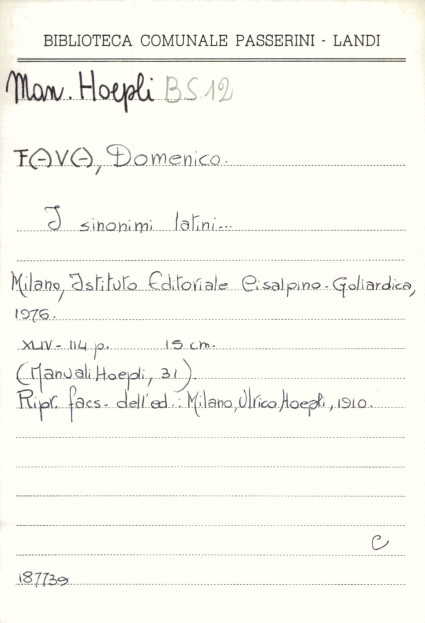 BIBLIOTECA COMUNALE PASSERINI - LANDI
Man. Hoepli B S 12
F(-)V(-), Domenico.
I sinonimi latini...
Milano, Istituto Editoriale Cisalpino-Goliardica,
1976.
XLIV-114 p. 15 cm.
(Manuali Hoepli, 31).
Ripr. facs. dell'ed.: Milano, Ulrico Hoepli, 1910.
C
187739